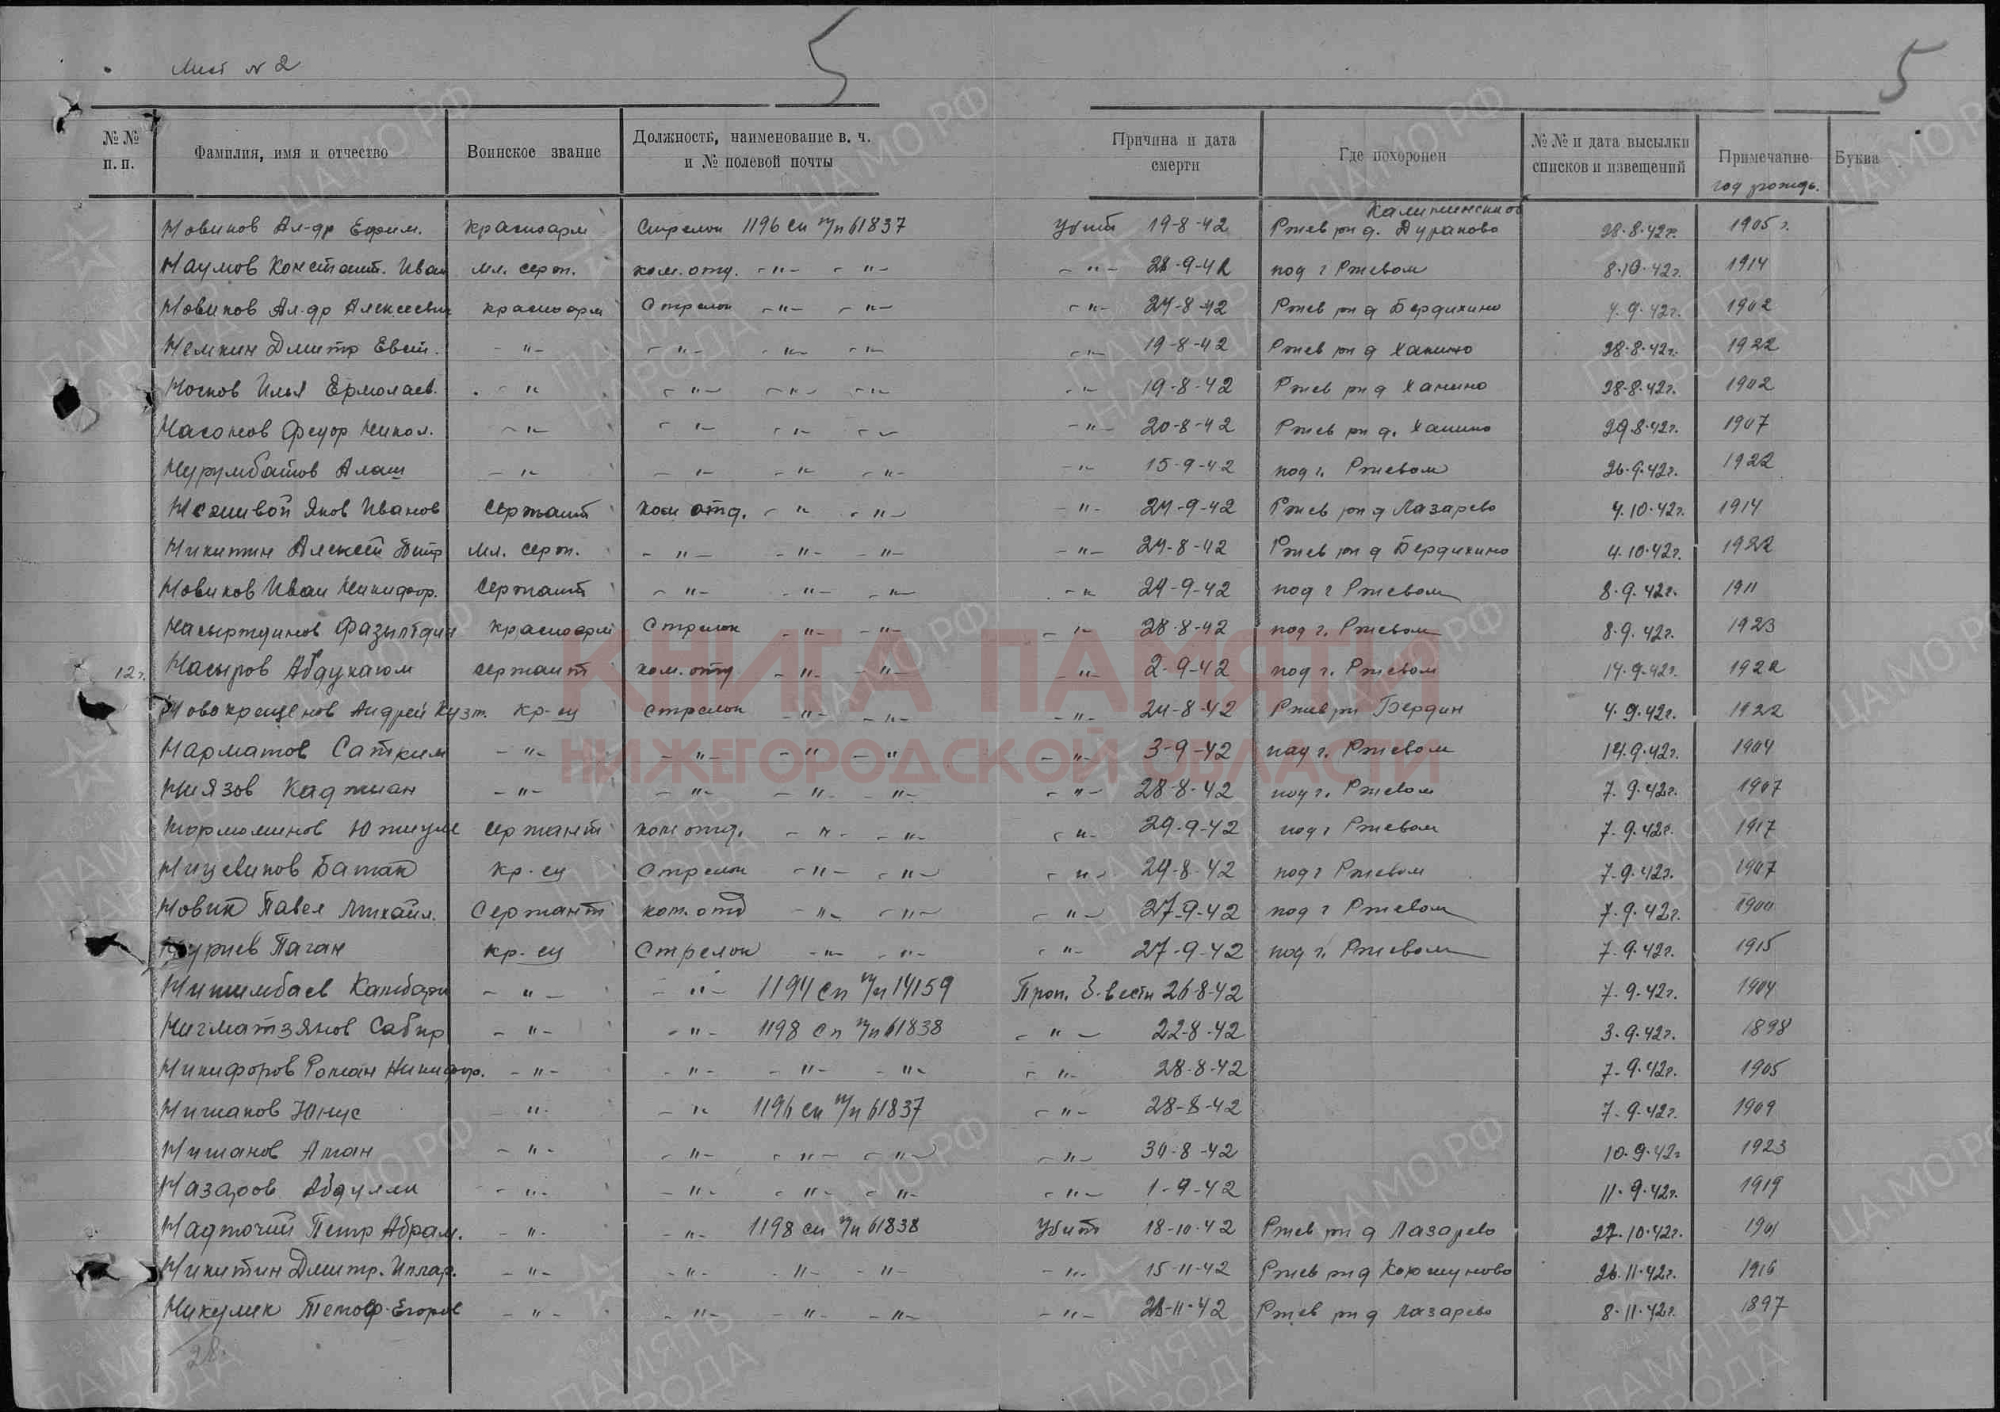 Лист № 2
5
5
№ № п. п. Фамилия, имя и отчество Воинское звание Должность, наименование в. ч. и № полевой почты Причина и дата смерти Где похоронен № № и дата высылки списков и извещений Примечание год рожд. Буква
Новиков Ал-др Ефим. красноарм Стрелок 1196 сп п/п 61837 Убит 19-8-42 Калининской Ржев рн д. Дураково 28.8.42г. 1905 г.
Наумов Констант. Иван мл. серж. ком. отд. -"- -"- -"- 28-9-42 под г Ржевом 8.10.42г. 1914
Новиков Ал-др Алексеевич красноарм Стрелок -"- -"- -"- 24-8-42 Ржев рн д Бердихино 4.9.42г. 1902
Немкин Дмитр Евст. -"- -"- -"- -"- -"- 19-8-42 Ржев рн д Ханино 28.8.42г. 1922
Носков Илья Ермолаев. -"- -"- -"- -"- -"- 19-8-42 Ржев рн д Ханино 28-8-42г. 1902
Насонов Федор Никол. -"- -"- -"- -"- -"- 20-8-42 Ржев рн д. Ханино 29.8.42г. 1907
Нурумбатов Алаш -"- -"- -"- -"- -"- 15-9-42 под г. Ржевом 26.9.42г. 1922
Яков Иванов Сержант Ком отд. -"- -"- -"- 24-9-42 Ржев рн д Лазарево 4.10.42г. 1914
Никитин Алексей Петр Мл. серж. -"- -"- -"- -"- 24-8-42 Ржев рн д Бердихино 4.10.42г. 1922
Новиков Иван Никифор. Сержант -"- -"- -"- -"- 24-9-42 под г Ржевом 8.9.42г. 1911
Насырждинов Фазылтдин красноарм Стрелок -"- -"- -"- 28-8-42 под г. Ржевом 8.9.42г. 1923
12г. Насыров Абдукаюм сержант ком. отд -"- -"- -"- 2-9-42 под г. Ржевом 14.9.42г. 1922
Новокрещенов Андрей Кузт. кр-ец стрелок -"- -"- -"- 24-8-42 Ржев рн Бердин 4.9.42г. 1922
Нарматов Сатким -"- -"- -"- -"- -"- 3-9-42 под г. Ржевом 14.9.42г. 1904
Ниязов Каджиан -"- -"- -"- -"- -"- 28-8-42 под г. Ржевом 7.9.42г. 1907
сержант ком отд. -"- -"- -"- 29-9-42 под г Ржевом 7.9.42г. 1917
Батан кр-ец Стрелок -"- -"- -"- 29-8-42 под г Ржевом 7.9.42г. 1907
Новик Павел Михайл. Сержант ком. отд -"- -"- -"- 27-9-42 под г Ржевом 7.9.42г. 1900
Нуриев Паган кр-ец Стрелок -"- -"- -"- 27-9-42 под г. Ржевом 7.9.42г. 1915
-"- -"- 1194 сп п/п 14159 Проп. Б-вести 26-8-42 7.9.42г. 1904
Нигматзянов Сабир -"- -"- 1198 сп п/п 61838 -"- 22-8-42 3.9.42г. 1898
Никифоров Роман Никифор. -"- -"- -"- -"- -"- 28-8-42 7.9.42г. 1905
Нишанов Юнус -"- -"- 1196 сп п/п 61837 -"- 28-8-42 7.9.42г. 1909
Нишанов Аман -"- -"- -"- -"- -"- 30-8-42 10.9.42г 1923
Назаров Абдулли -"- -"- -"- -"- -"- 1-9-42 11.9.42г. 1919
Надточий Петр Абрам. -"- -"- 1198 сп п/п 61838 Убит 18-10-42 Ржев рн д Лазарево 27.10.42г. 1901
Никитин Дмитр. Иллар. -"- -"- -"- -"- -"- 15-11-42 Ржев рн д Коршуново 26.11.42г. 1916
Никулин Тимоф. Егоров -"- -"- -"- -"- -"- 28-11-42 Ржев рн д Лазарево 8.11.42г. 1897
28.
КНИГА ПАМЯТИ
НИЖЕГОРОДСКОЙ ОБЛАСТИ
ПАМЯТЬ НАРОДА
ЦАМО.РФ